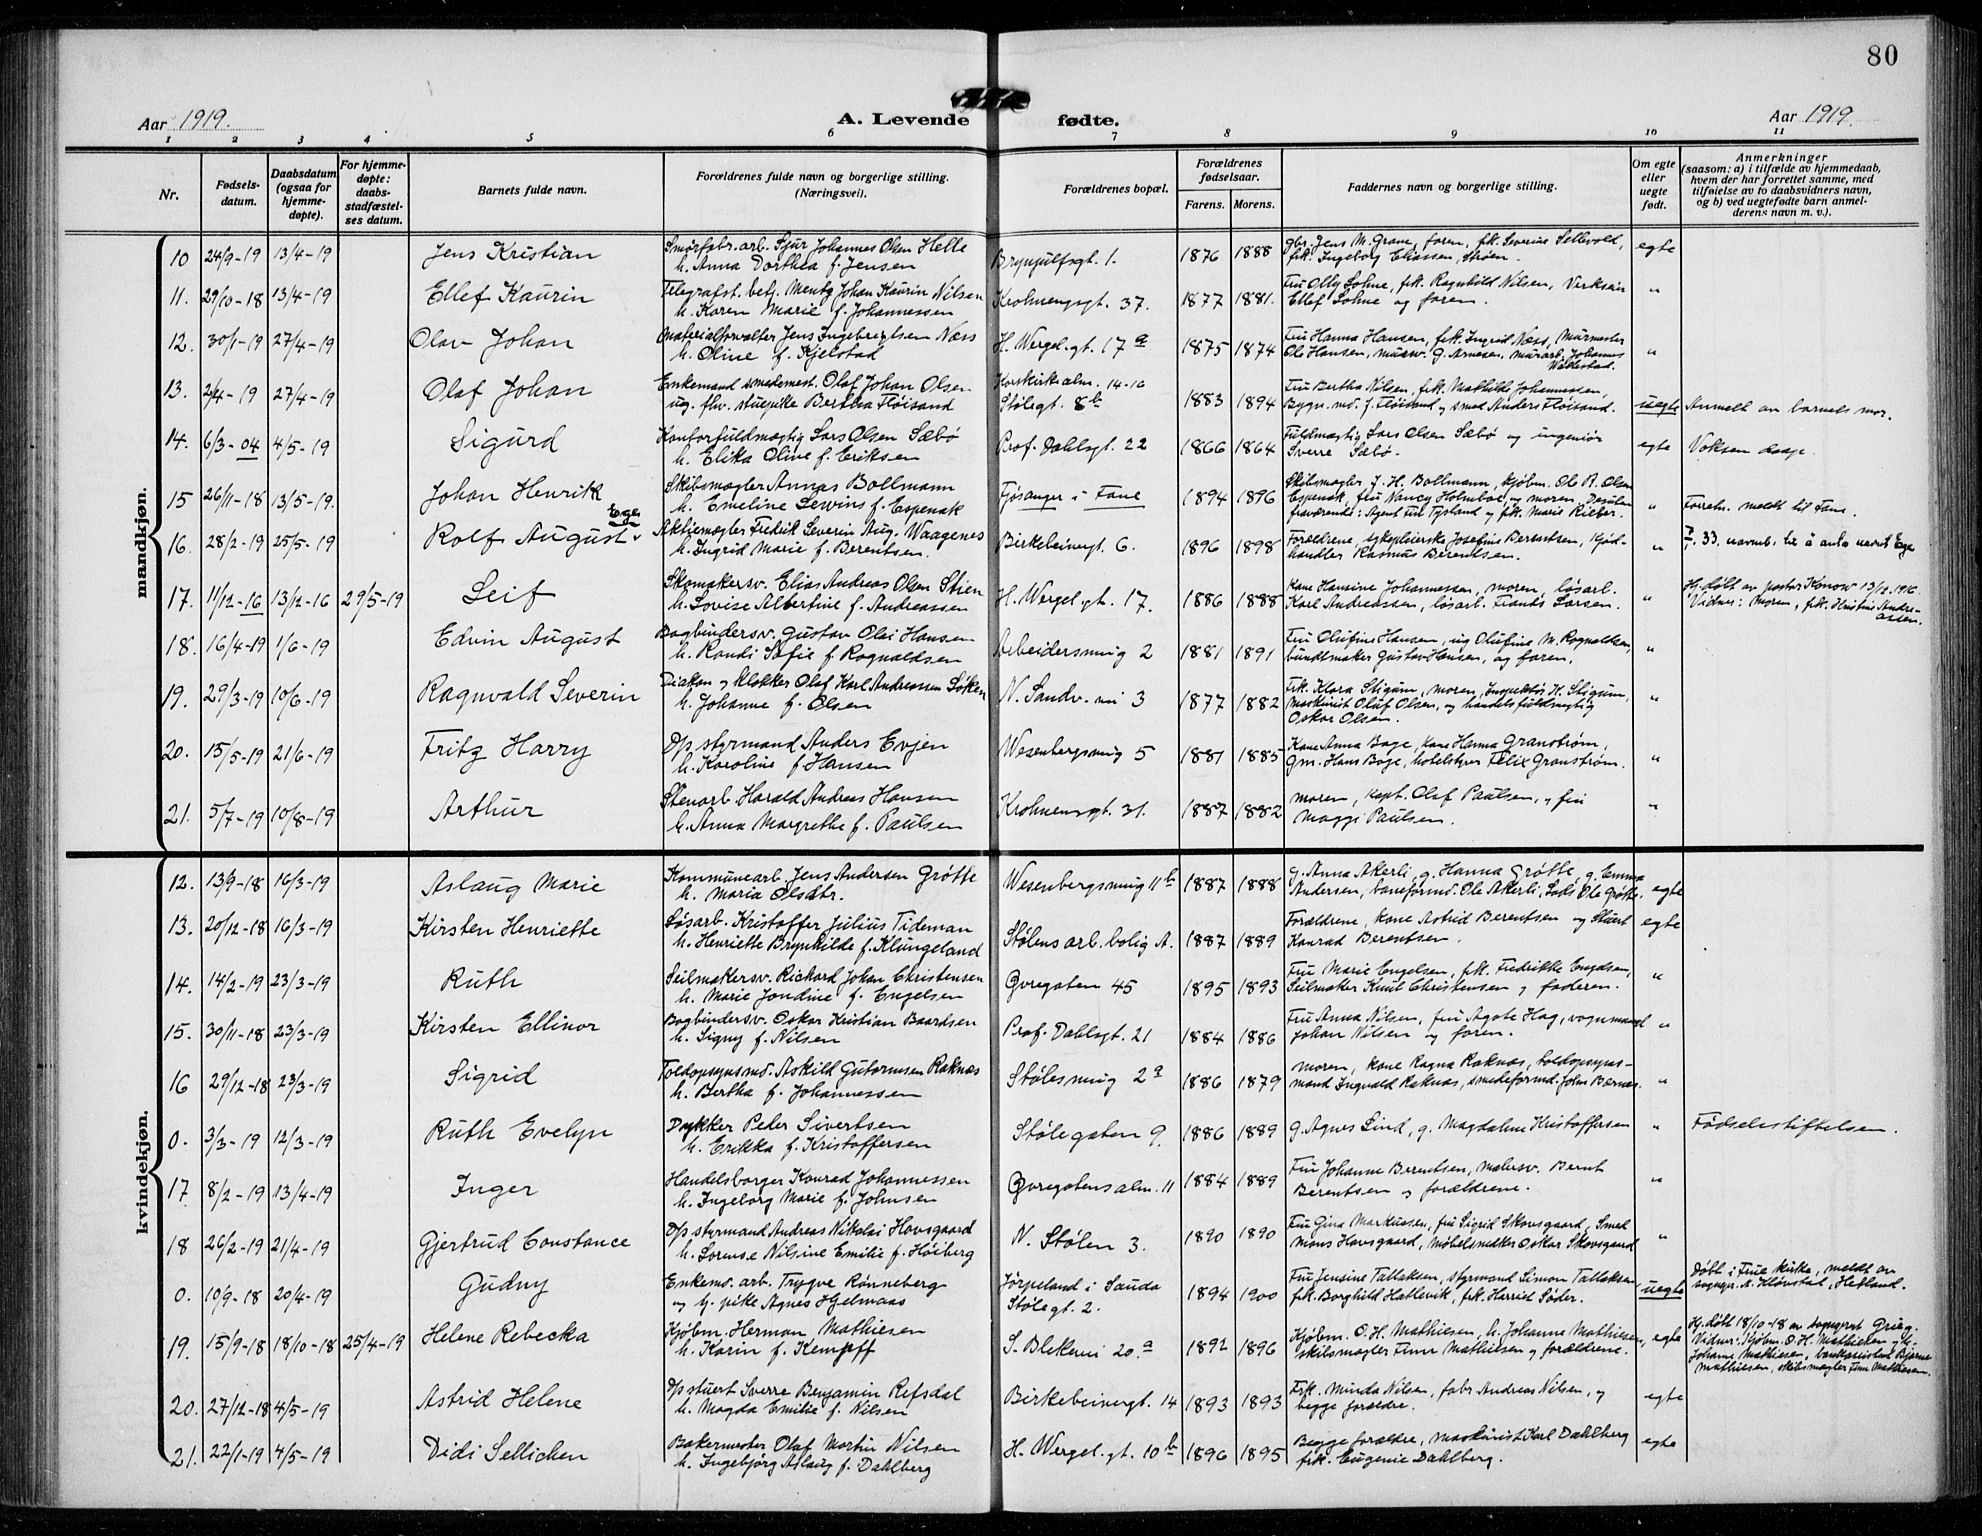 80
Aar 1919.
A. Levende fødte.
Aar 1919.
1 2 3 4 5 6 7 8 9 10 11
Nr.
Fødsels-
datum.
Daabsdatum
(ogsaa for
hjemme-
døpte).
For hjemme-
døpte:
daabs-
stadfæstel-
ses datum.
Barnets fulde navn.
Forældrenes fulde navn og borgerlige stilling.
(Næringsvei).
Forældrenes bopæl.
Forældrenes
fødselsaar.
Farens. Morens.
Faddernes navn og borgerlige stilling.
Om egte
eller
uegte
født.
Anmerkninger
(saasom: a) i tilfælde av hjemmedaab,
hvem der har forrettet samme, med
tilføielse av to daabsvidners navn,
og b) ved uegtefødte barn anmel-
derens navn m. v.).
mandkjøn.
10 24/9-19 13/4-19 Jens Kristian
Smørfabr. arb. Sjur Johannes Olsen Helle
h. Anna Dorthea f. Jensen
Brynjulfsgt. 1. 1876 1888
gbr. Jens M. Grane, faren, frk. Severine Sellevold,
frk. Ingeborg Eliassen, Strøen.
egte
11. 29/10-18 13/4-19 Ellef Kaurin
Telegrafst. betj. Mentz Johan Kaurin Nilsen
h. Karen Marie f. Johannessen
Krohnengsgt. 37. 1877 1881.
Fru Olly Lohne, frk. Ragnhild Nilsen, Verkseier
Ellef Lohne og faren.
"
12. 30/1-19 27/4-19 Olav Johan
Materialforvalter Jens Ingebregtsen Næss
h. Oline f. Kjelstad
H. Wergel. gt. 17 a 1875 1874
Fru Hanna Hansen, frk. Ingrid Næss, Murmester
Ole Hansen, mursv. G. Arnesen, murarb. Johannes
"
13. 2/4-19 27/4-19 Olaf Johan
Enkemand smedemest. Olaf Johan Olsen
ug. fhv. stuepike Bertha Fløisand
Korskirkealm. 14-16
Stølegt. 8b 1883 1894
Fru Bertha Nilsen, frk. Mathilde Johannessen,
Bygn. md. J. Fløisand og smed Anders Fløisand.
uegte Anmeldt av barnets mor.
14. 6/3-04 4/5-19 Sigurd
Kontorfuldmægtig Lars Olsen Sæbø
h. Elika Olive f. Eriksen
Prof. Dahlsgt. 22 1866 1864
Fuldmægtig Lars Olsen Sæbø og ingeniør
Sverre Sæbø.
egte Voksen daap.
15 26/11-18 13/5-19. Johan Henrik
Skibsmægler Annas Bollmann
h. Emeline Lewins f. Espenak
Fjøsanger i Fane 1894 1896
Skibsmægler J. H. Bollmann, kjøbm. Ole R. Olsen
Espenak, fru Nancy Holmboe og moren, Desuten
fraværende: Agent Finn Tysland og frk. Marie Rieber.
" Forretn. meldt til Fane.
16. 28/2-19 25/5-19 Rolf August Ege
Aktiemægler Fredrik Severin Aug. Waagenes
h. Ingrid Marie f. Berentsen.
Birkebeinergt. 6. 1896 1898
Forældrene, sykepleierske Josefine Berentsen, Kjød-
handler Rasmus Berentsen.
" 33. navnb. til å anta navnet Ege
17. 11/12-16 13/12-16 29/5-19 Leif
Skomakersv. Elias Andreas Olsen Stien
h. Lovise Albertine f. Andreassen
H. Wergel. gt. 17. 1886 1888
Kone Hansine Johannessen, moren, løsarb.
Karl Andreassen, løsarb. Frants Larsen.
" Hj. døbt av pastor Konow 13/12.1916.
Vidner: Moren, frk. Kristine Andre-
assen.
18. 16/4-19 1/6-19 Edvin August
Bogbindersv. Gustav Olai Hansen
h. Randi Sofie f. Rognaldsen
Arbeidersmug 2 1881 1891
Fru Olufine Hansen, ug. Olufine M. Rognaldsen,
bundtmaker Gustav Hansen, og faren.
"
19. 29/3-19 10/6-19 Ragnvald Severin
Diakon og klokker Olaf Karl Andreassen Søken
h. Johanne f. Olsen
N. Sandv. vei 3 1877 1882
Frk. Klara Stigum, moren, Inspektør H. Stigum,
maskinist Oluf Olsen, og handelsfuldmægtig
Oskar Olsen.
"
20. 15/5-19 21/6-19 Fritz Harry
D/s styrmand Anders Evjen
h. Karoline f. Hansen
Wesenbergsmug 5 1881 1885
Kone Anna Bage, kone Hanna Granstrøm,
Gm. Hans Bage, hotelstyrer Felix Granstrøm.
"
21. 5/7-19 10/8-19 Arthur
Stenarb. Harald Andreas Hansen
h. Anna Margrethe f. Paulsen
Krohnengsgt. 31. 1887 1882
moren, kapt. Olaf Paulsen, og fru
Maggi Paulsen.
"
kvindekjøn.
12. 13/9-18 16/3-19 Aslaug Marie
Kommunearb. Jens Andersen Grøtte
h. Maria Olsdtr.
Wesenbergsmug 11b 1887 1888
g. Anna Akerli, g. Hanna Grøtte, g. Emma
Andersen, baneformd. Ole Akerli, Lods Ole Grøtte.
egte
13. 20/12-18 16/3-19 Kirsten Henriette
Løsarb. Kristoffer Julius Tideman
h. Henriette Brynhilde f. Klungeland
Stølens arb. bolig A. 1887 1889
Forældrene, kone Astrid Berentsen og Stuert
Konrad Berentsen.
egte
14. 14/2-19 23/3-19 Ruth
Seilmakersv. Rickard Johan Christensen
h. Marie Jondine f. Engelsen
Øvregaten 45 1895 1893
Fru Marie Engelsen, frk. Fredrikke Engelsen,
Seilmaker Knut Christensen og faderen.
"
15. 30/11-18 23/3-19 Kirsten Ellinor
Bogbindersv. Oskar Kristian Baardsen
h. Signy f. Nilsen
Prof. Dahlsgt. 21 1884 1886
Fru Anna Nilsen, fru Agote Hag, vognmand
Johan Nilsen og faren.
"
16 29/12-18 23/3-19 Sigrid
Toldopsynsmd. Askild Guttormsen Raknæs
h. Bertha f. Johannessen
Stølesmug 2a 1886 1879
moren, kone Ragna Raknæs, toldopsyns-
mand Ingvald Raknæs, smedeformd. John Bernes.
"
0. 3/3-19 12/3-19 Ruth Evelyn
Dykker Peder Sivertsen
h. Erikka f. Kristoffersen
Stølegaten 9. 1886 1889
g. Agnes Lind, g. Magdalene Kristoffersen
" Fødselsstiftelsen.
17 8/2-19 13/4-19 Inger
Handelsborger Konrad Johannessen
h. Ingeborg Marie f. Johnsen
Øvregatens alm. 11 1884 1889
Fru Johanne Berentsen, malersv. Bernt
Berentsen og forældrene.
"
18 26/2-19 21/4-19 Gjertrud Constance
D/s styrmand Andreas Nikolai Hovsgaard
h. Lorense Nilsine Emilie f. Høiberg
N. Stølen 3. 1890 1890
Fru Gina Markussen, fru Sigrid Skovsgaard, Smed
Mons Hovsgaard, møbelsnedker Oskar Skovsgaard
"
0. 10/9-18 20/4-19 Gudny
Enkemd. arb. Trygve Rønneberg
og tj. pike Agnes Hjelmaas
Jørpeland i Sauda
Stølegt. 2. 1894 1900
Fru Jensine Tallaksen, styrmand Simon Tallaksen
frk. Borghild Hatlevik, frk. Harriet Søder.
uegte Døbt i Frue kirke, meldt av
sogepr. A. Kløvstad, Hetland.
19. 15/9-18 18/10-18 25/4-19 Helene Rebecka
Kjøbm. Herman Mathiesen
h. Karin f. Kempff
S. Blekevei 20 a 1892 1896
Kjøbm. O. H. Mathiesen, h. Johanne Mathiesen,
skibsmægler Finn Mathiesen og forældrene.
egte Hj. døbt 18/10-18 av sogneprest Grieg.
Vidner: Kjøbm. O. H. Mathiesen og h.
Johanne Mathiesen, bankassistent Bjarne
Mathiesen, skibsmægler Finn Mathiesen.
20. 27/12-18 4/5-19 Astrid Helene
D/s stuert Sverre Benjamin Refsdal
h. Magda Emilie f. Nilsen
Birkebeinergt. 14 1893 1893
Frk. Minda Nilsen, fabr. Andreas Nilsen, og
begge forældre.
egte
21. 22/1-19 4/5-19 Didi Sellichen
Bakermester Olaf Martin Nilsen
h. Ingebjørg Aslaug f. Dahlberg
H. Wergel. gt. 10b 1896 1895
Begge forældre, maskinist Karl Dahlberg
frk. Eugenie Dahlberg.
egte